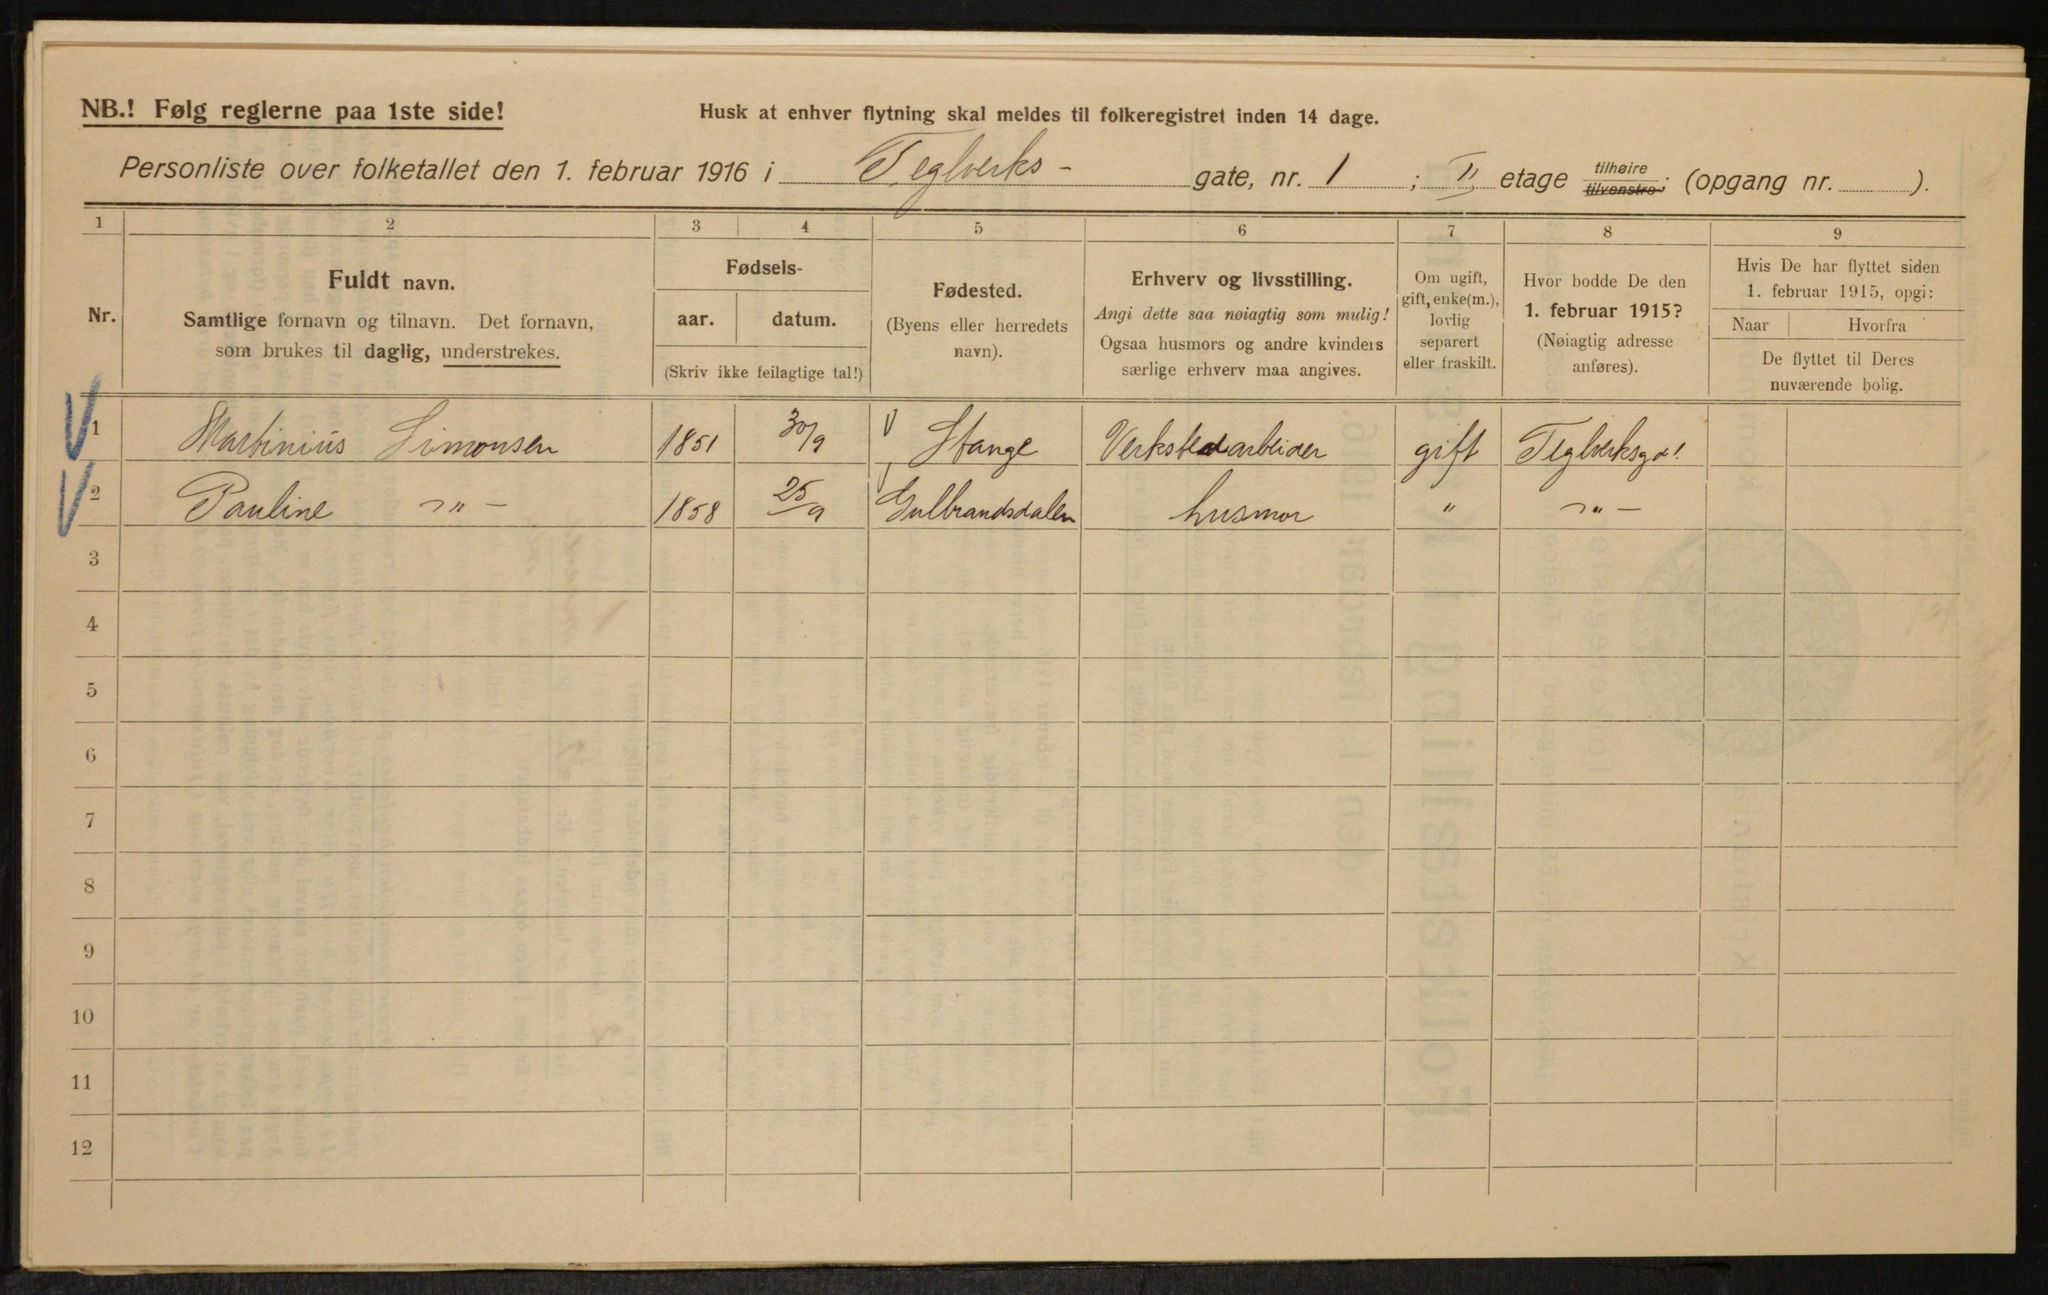 NB.! Følg reglerne paa 1ste side!
Husk at enhver flytning skal meldes til folkeregistret inden 14 dage.
Personliste over folketallet den 1. februar 1916 i Teglverks- gate, nr. 1 ; II etage tilhøire tilvenstre; (opgang nr. ).
1 2 3 4 5 6 7 8 9
Nr.
Fuldt navn.
Samtlige fornavn og tilnavn. Det fornavn,
som brukes til daglig, understrekes.
Fødsels-
aar. datum.
(Skriv ikke feilagtige tal!)
Fødested.
(Byens eller herredets
navn).
Erhverv og livsstilling.
Angi dette saa nøiagtig som mulig!
Ogsaa husmors og andre kvinders
særlige erhverv maa angives.
Om ugift,
gift, enke(m.),
lovlig
separert
eller fraskilt.
Hvor bodde De den
1. februar 1915?
(Nøiagtig adresse
anføres).
Hvis De har flyttet siden
1. februar 1915, opgi:
Naar Hvorfra
De flyttet til Deres
nuværende bolig.
1 Martinius Simonsen 1851 30/9 Stange Verkstedarbeider gift Teglverksgd.
2 Pauline -"- 1858 25/9 Gulbrandsdalen husmor " -"-
3
4
5
6
7
8
9
10
11
12